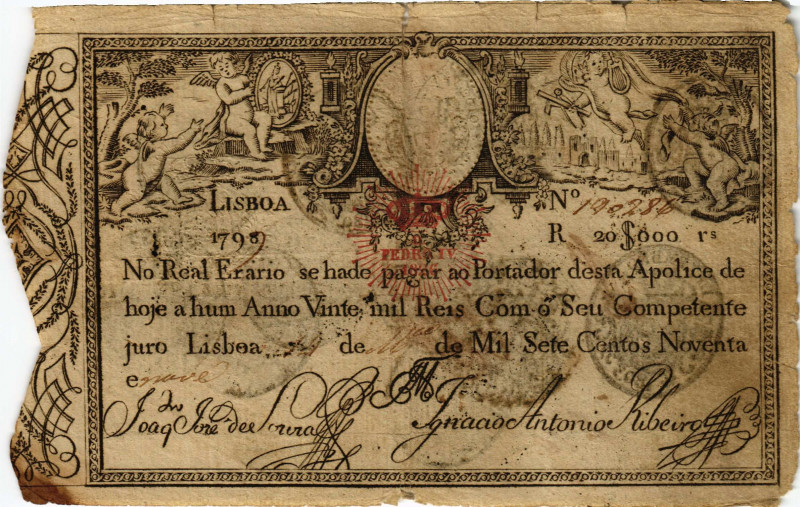 LISBOA Nº 190286
1799 R 20$000 rs
No Real Erario se hade pagar ao Portador desta Apolice de
hoje a hum Anno Vinte mil Reis Com o Seu Competente
juro Lisboa de de Mil Sete Centos Noventa
e nove
Joaq Jose de Souza Ignacio Antonio Ribeiro